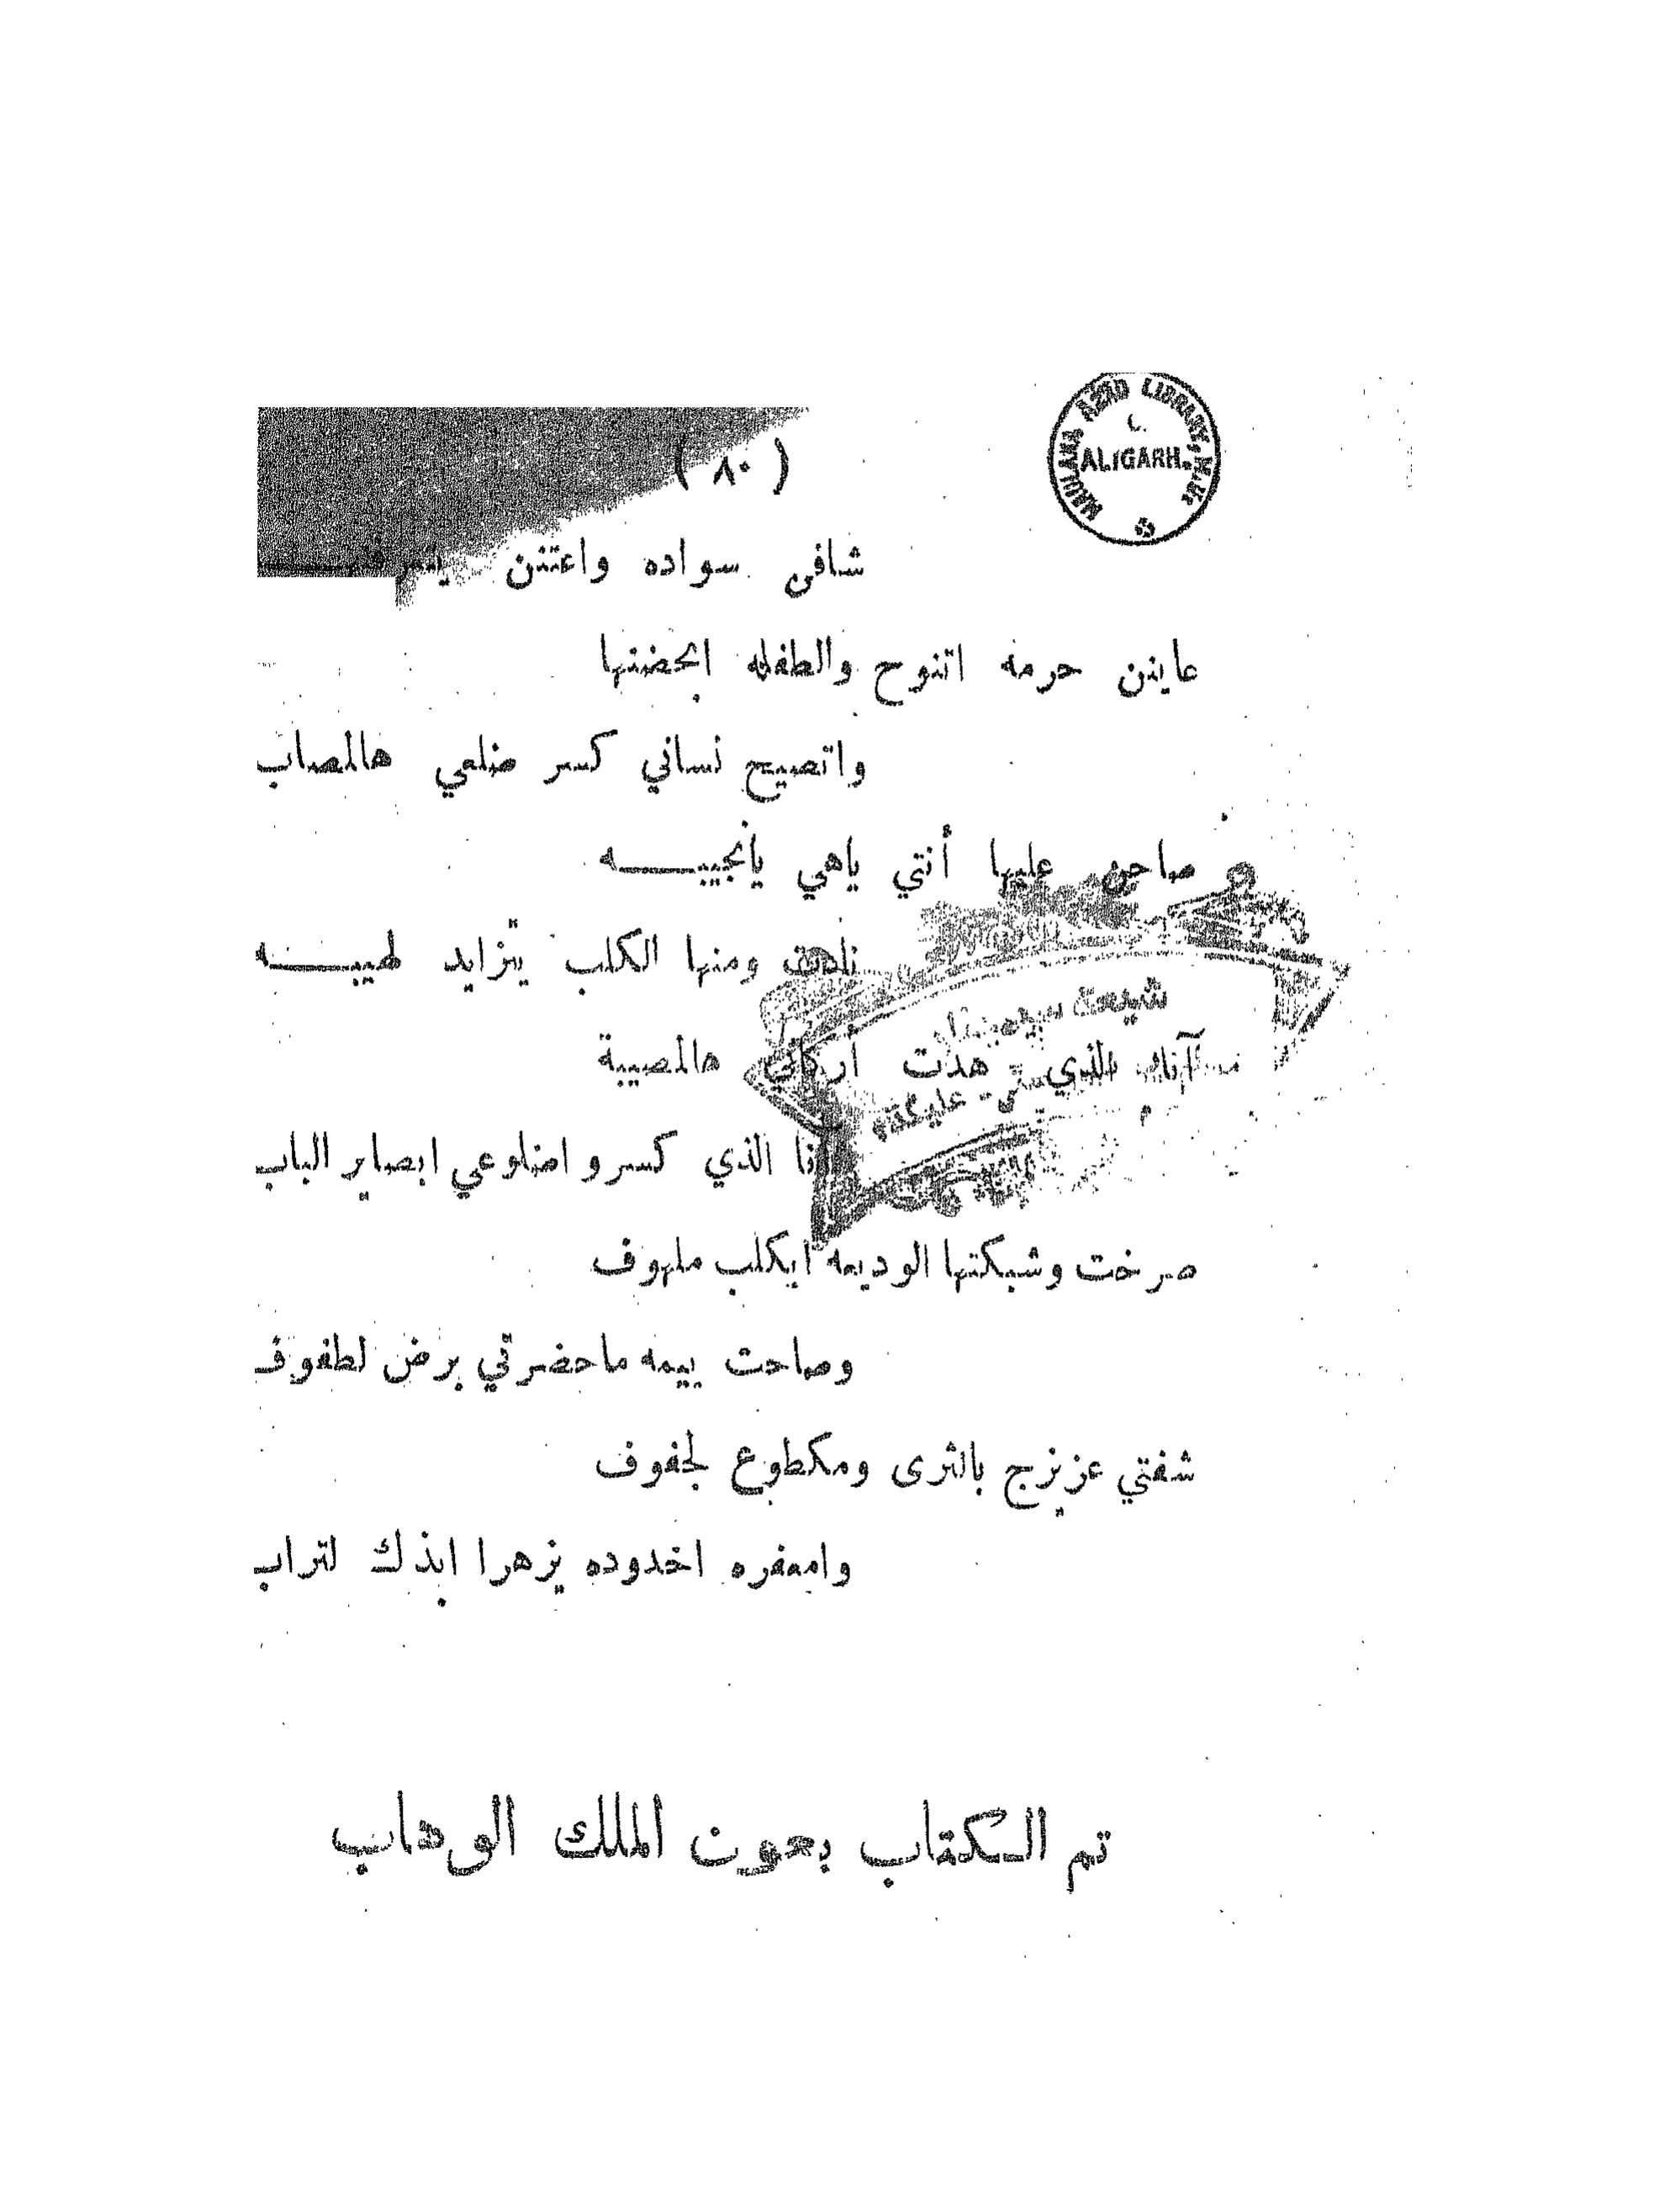 MAULANA AZAD LIBRARY, A.M.U.
ALIGARH.
( ٨٠ )
شافن سواده واعتنن
عاينن حرمه اتنوح والطفله ابحضنها
واتصيح نساني كسر ضلعي هالمصاب
صاحن عليها أنتي ياهي يانجيبــــه
نادت ومنها الكلب يتزايد لهيبــــه
آنه الذي هدت أركاني هالمصيبة
انا الذي كسرو اضلوعي ابصاير الباب
صرخت وشبكتها الوديعه ابكلب ملهوف
وصاحت ييمه ماحضرتي برض لطفوف
شفتي عزيزج بالثرى ومكطوع لجفوف
وامعفره اخدوده يزهرا ابذك لتراب
تم الكتاب بعون الملك الوهاب